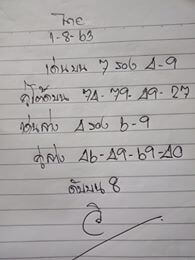 ไทย
1-8-63
เด่นบน 7 รอง 4-9
คู่โต๊ดบน 74-79-49-27
เด่นล่าง 4 รอง 6-9
คู่ล่าง 46-49-69-40
ดับบน 8